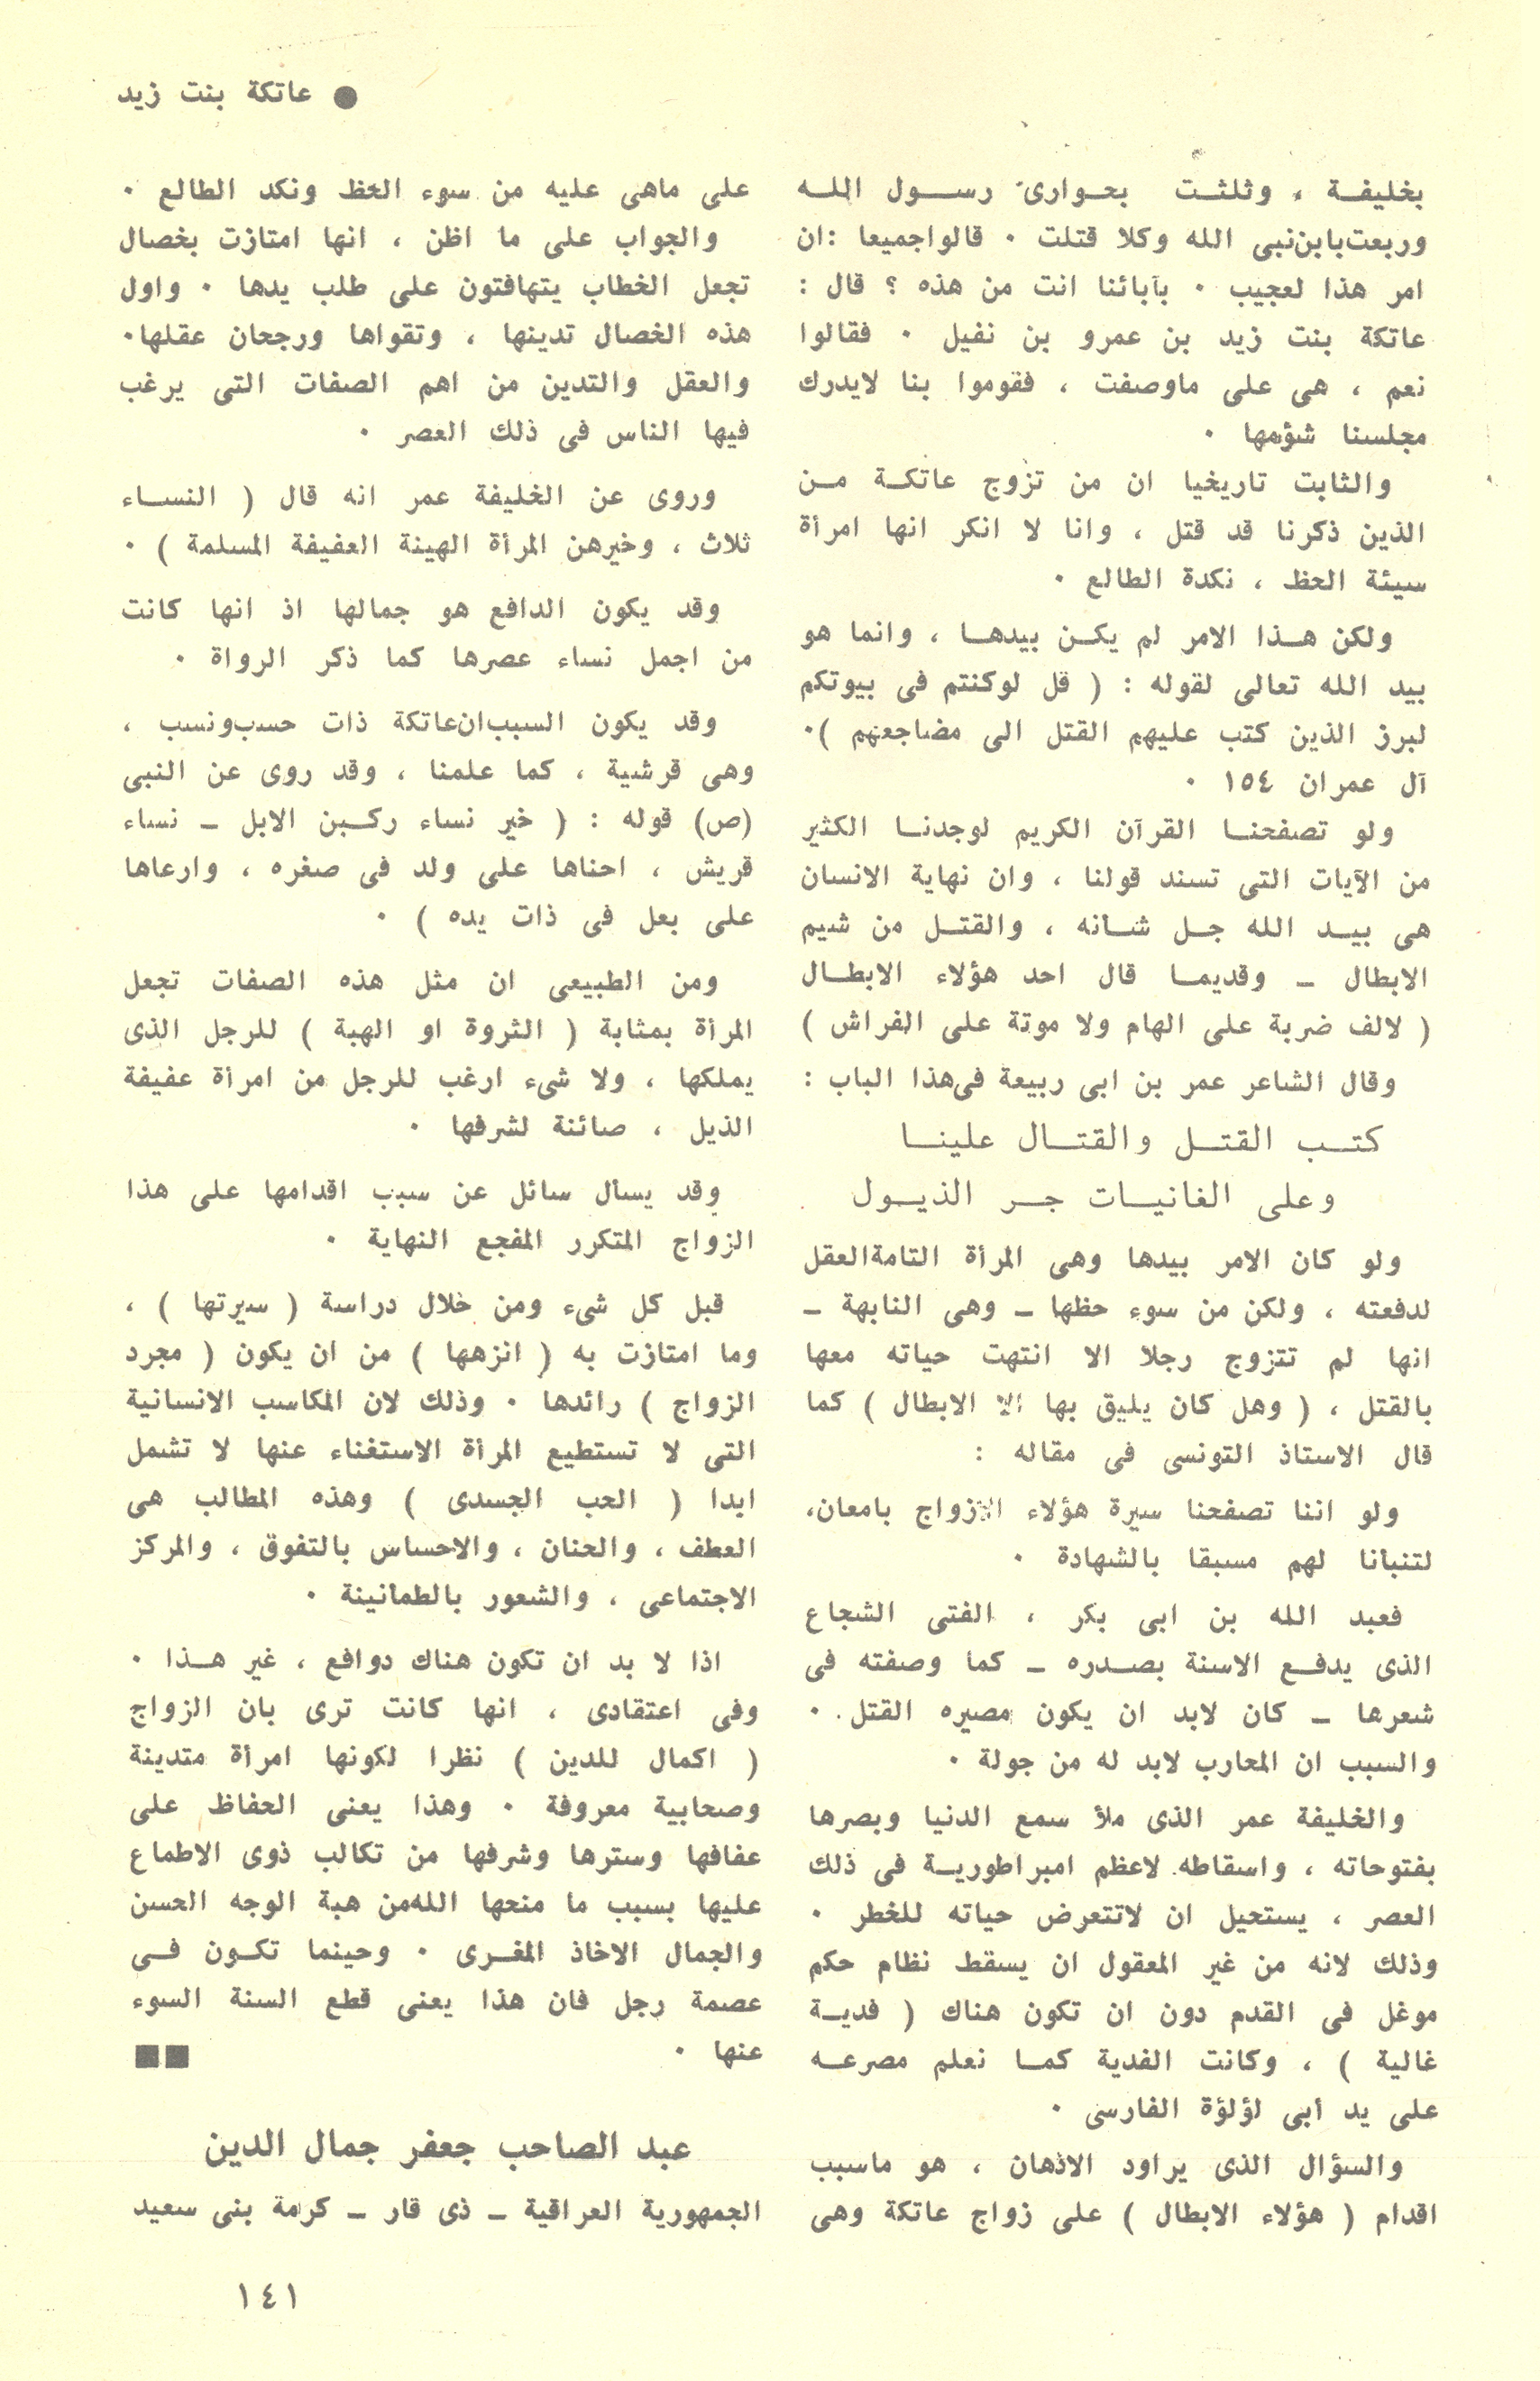 ● عاتكة بنت زيد
بخليفـة ، وثلثـت بحـوارى رسـول اللـه
وربعت بابن نبى الله وكلا قتلت ٠ قالوا جميعا : ان
امر هذا لعجيب ٠ بآبائنا انت من هذه ؟ قال :
عاتكة بنت زيد بن عمرو بن نفيل ٠ فقالوا
نعم ، هى على ماوصفت ، فقوموا بنا لايدرك
مجلسنا شؤمها ٠
والثابت تاريخيا ان من تزوج عاتكـة مـن
الذين ذكرنا قد قتل ، وانا لا انكر انها امرأة
سيئة الحظ ، نكدة الطالع ٠
ولكن هـذا الامر لم يكـن بيدهـا ، وانما هو
بيد الله تعالى لقوله : ( قل لوكنتم فى بيوتكم
لبرز الذين كتب عليهم القتل الى مضاجعهم )٠
آل عمران ١٥٤ ٠
ولو تصفحنـا القرآن الكريم لوجدنـا الكثير
من الآيات التى تسند قولنا ، وان نهاية الانسان
هى بيـد الله جـل شـانه ، والقتـل من شيم
الابطال ـ وقديمـا قال احد هؤلاء الابطـال
( لالف ضربة على الهام ولا موتة على الفراش )
وقال الشاعر عمر بن ابى ربيعة فى هذا الباب :
كتـب القتـل والقتـال علينـا
وعلى الغانيـات جـر الذيـول
ولو كان الامر بيدها وهى المرأة التامة العقل
لدفعته ، ولكن من سوء حظها ـ وهى النابهة ـ
انها لم تتزوج رجلا الا انتهت حياته معها
بالقتل ، ( وهل كان يليق بها الا الابطال ) كما
قال الاستاذ التونسى فى مقاله :
ولو اننا تصفحنا سيرة هؤلاء الازواج بامعان،
لتنبأنا لهم مسبقا بالشهادة ٠
فعبد الله بن ابى بكر ، الفتى الشجاع
الذى يدفـع الاسنة بصـدره ـ كما وصفته فى
شعرها ـ كان لابد ان يكون مصيره القتل ٠
والسبب ان المحارب لابد له من جولة ٠
والخليفة عمر الذى ملأ سمع الدنيا وبصرها
بفتوحاته ، واسقاطه لاعظم امبراطوريـة فى ذلك
العصر ، يستحيل ان لاتتعرض حياته للخطر ٠
وذلك لانه من غير المعقول ان يسقط نظام حكم
موغل فى القدم دون ان تكون هناك ( فديـة
غالية ) ، وكانت الفدية كمـا نعلم مصرعـه
على يد أبى لؤلؤة الفارسى ٠
والسؤال الذى يراود الاذهان ، هو ماسبب
اقدام ( هؤلاء الابطال ) على زواج عاتكة وهى
على ماهى عليه من سوء الحظ ونكد الطالع ٠
والجواب على ما اظن ، انها امتازت بخصال
تجعل الخطاب يتهافتون على طلب يدها ٠ واول
هذه الخصال تدينها ، وتقواها ورجحان عقلها٠
والعقل والتدين من اهم الصفات التى يرغب
فيها الناس فى ذلك العصر ٠
وروى عن الخليفة عمر انه قال ( النسـاء
ثلاث ، وخيرهن المرأة الهينة العفيفة المسلمة ) ٠
وقد يكون الدافع هو جمالها اذ انها كانت
من اجمل نساء عصرها كما ذكر الرواة ٠
وقد يكون السبب ان عاتكة ذات حسب ونسب ،
وهى قرشية ، كما علمنا ، وقد روى عن النبى
(ص) قوله : ( خير نساء ركـبن الابل ـ نساء
قريش ، احناها على ولد فى صغره ، وارعاها
على بعل فى ذات يده ) ٠
ومن الطبيعى ان مثل هذه الصفات تجعل
المرأة بمثابة ( الثروة او الهبة ) للرجل الذى
يملكها ، ولا شىء ارغب للرجل من امرأة عفيفة
الذيل ، صائنة لشرفها ٠
وقد يسأل سائل عن سبب اقدامها على هذا
الزواج المتكرر المفجع النهاية ٠
قبل كل شىء ومن خلال دراسة ( سيرتها ) ،
وما امتازت به ( انزهها ) من ان يكون ( مجرد
الزواج ) رائدها ٠ وذلك لان المكاسب الانسانية
التى لا تستطيع المرأة الاستغناء عنها لا تشمل
ابدا ( الحب الجسدى ) وهذه المطالب هى
العطف ، والحنان ، والاحساس بالتفوق ، والمركز
الاجتماعى ، والشعور بالطمانينة ٠
اذا لا بد ان تكون هناك دوافع ، غير هـذا ٠
وفى اعتقادى ، انها كانت ترى بان الزواج
( اكمال للدين ) نظرا لكونها امرأة متدينة
وصحابية معروفة ٠ وهذا يعنى الحفاظ على
عفافها وسترها وشرفها من تكالب ذوى الاطماع
عليها بسبب ما منحها الله من هبة الوجه الحسن
والجمال الاخاذ المغـرى ٠ وحينما تكـون فـى
عصمة رجل فان هذا يعنى قطع السنة السوء
عنها ٠ ■■
عبد الصاحب جعفر جمال الدين
الجمهورية العراقية ـ ذى قار ـ كرمة بنى سعيد
١٤١